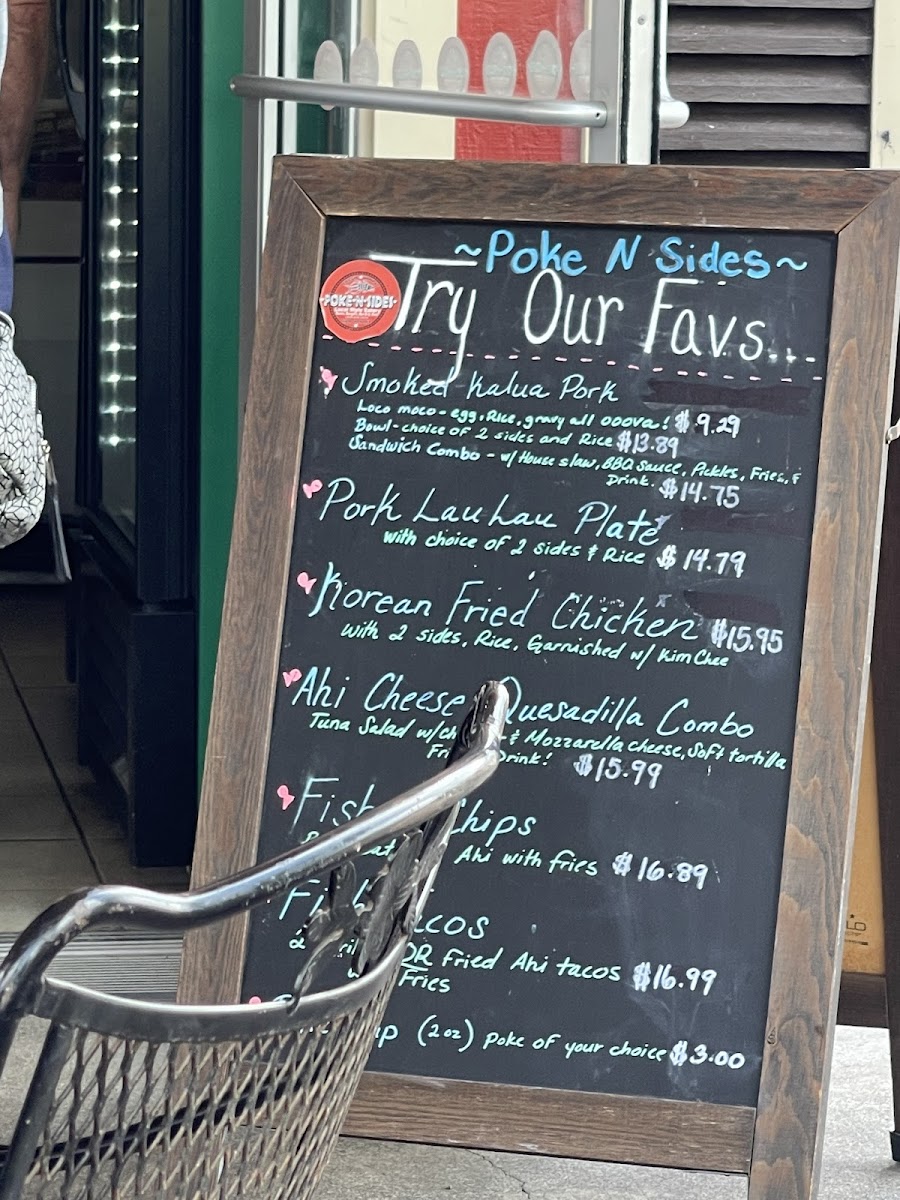 ~Poke N Sides~
POKE-N-SIDES
Try Our Favs...
Smoked Kalua Pork
Loco moco - egg, Rice, gravy all ooova! $9.29
Bowl - choice of 2 sides and Rice $13.89
Sandwich Combo - w/ House slaw, BBQ sauce, Pickles, Fries, &
Drink. $14.75
Pork Lau Lau Plate
with choice of 2 sides & Rice $14.79
Korean Fried Chicken $15.95
with 2 sides, Rice, Garnished w/ Kim Chee
Ahi Cheese Quesadilla Combo
Tuna Salad w/ & Mozzarella cheese, Soft tortilla
Drink! $15.99
Fish Chips
Ahi with fries $16.89
2 OR Fried Ahi tacos $16.99
Fries
(2 oz) poke of your choice $3.00